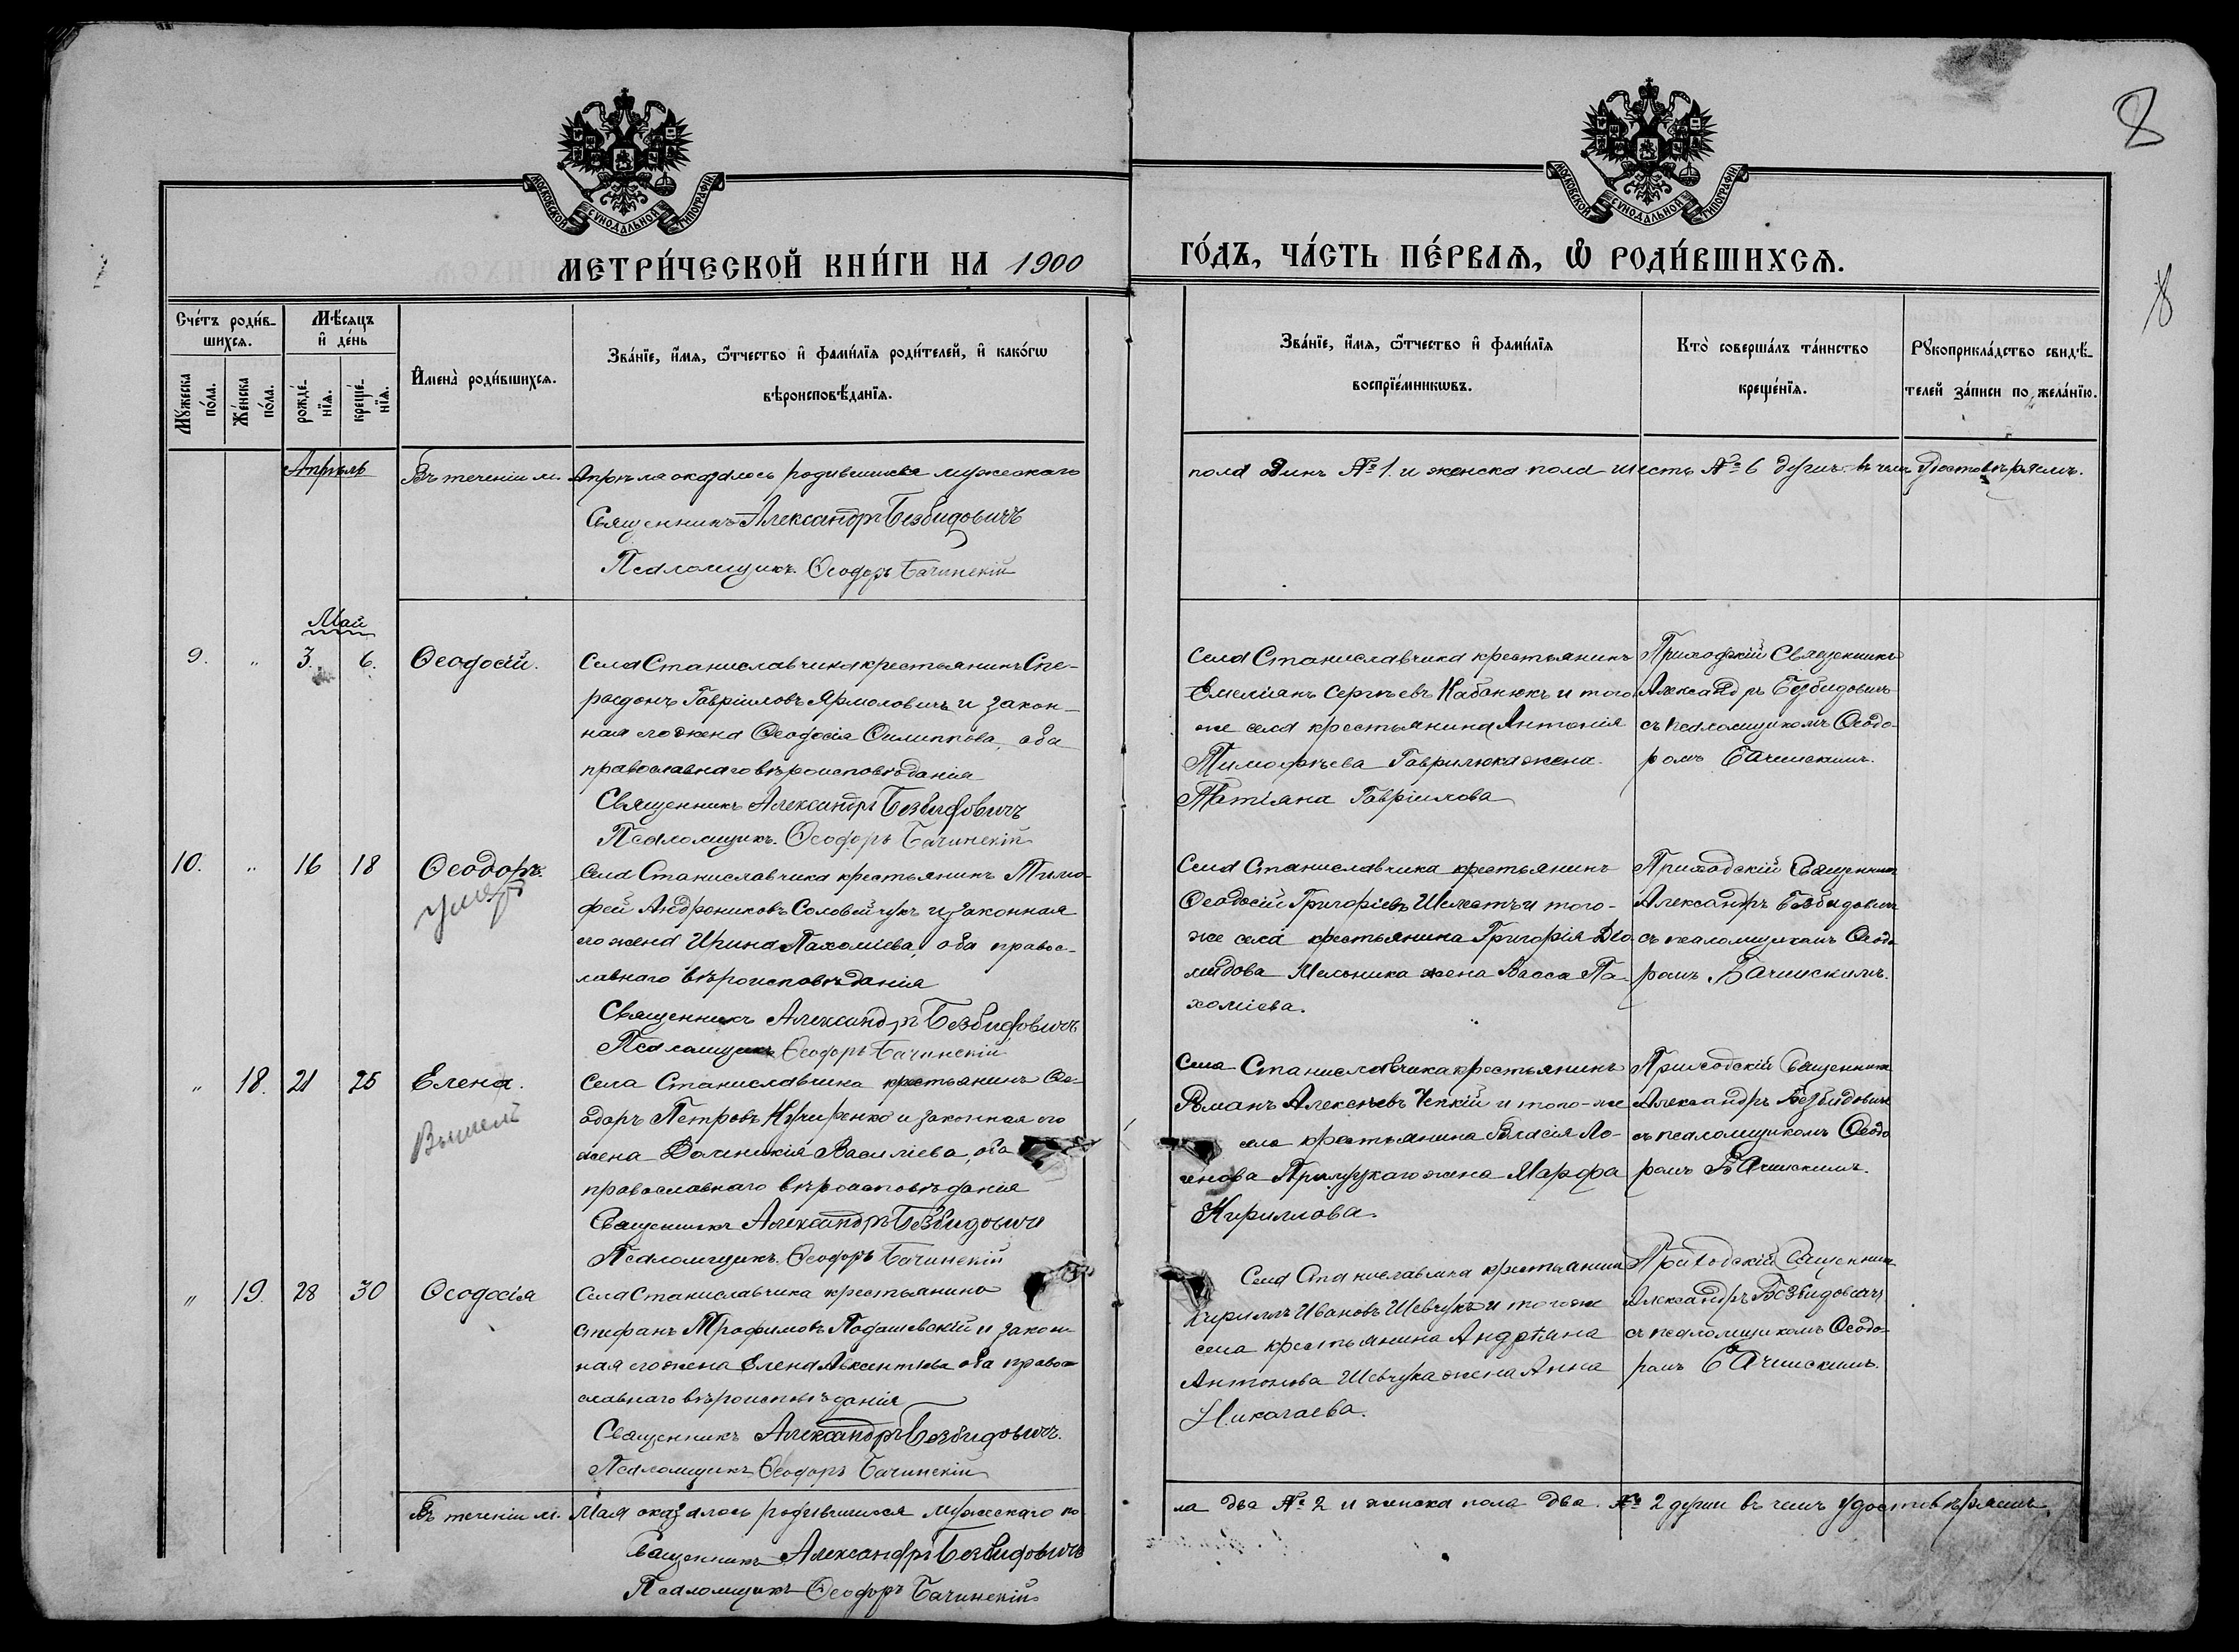 8
8
МОСКОВСКОЙ СѴНОДАЛЬНОЙ ТИПОГРАФІИ
МОСКОВСКОЙ СѴНОДАЛЬНОЙ ТИПОГРАФІИ
МЕТРИ́ЧЕСКОЙ КНИ́ГИ НА 1900
ГО́ДЪ, ЧА́СТЬ ПЕ́РВАѦ, Ѡ҆ РОДИ́ВШИХСѦ.
Сче́тъ роди́в-
шихсѧ.
Мꙋ́жеска по́ла.
Же́нска по́ла.
Мѣ́сѧцъ
и҆ де́нь
рожде́-
нїѧ.
креще́-
нїѧ.
И҆мена̀ роди́вшихсѧ.
Зва́нїе, и҆́мѧ, ѻ҆́тчество и҆ фами́лїѧ роди́телей, и҆ како́гѡ
вѣроисповѣ́данїѧ.
Зва́нїе, и҆́мѧ, ѻ҆́тчество и҆ фами́лїѧ
воспрїе́мникѡвъ.
Кто̀ соверша́лъ та́инство
креще́нїѧ.
Рꙋкоприкла́дство свидѣ́-
телей за́писи по жела́нїю.
Апрѣль
Въ теченіи м. Апрѣля оказалось родившихся мужескаго
пола одинъ № 1. и женска пола шесть № 6 душъ въ чемъ удостовѣряемъ.
Священникъ Александръ Безвидовичъ
Псаломщикъ Ѳеодоръ Бачинскій
Май
9. " 3. 6. Ѳеодосій.
Села Станиславчика крестьянинъ Спе-
ридонъ Гавріиловъ Ярмоловичъ и закон-
ная его жена Ѳеодосія Филиппова, оба
православнаго вѣроисповѣданія
Священникъ Александръ Безвидовичъ
Псаломщикъ Ѳеодоръ Бачинскій
Села Станиславчика крестьянинъ
Емеліанъ Сергѣевъ Кабанюкъ и того
же села крестьянина Антонія
Тимофѣева Гаврилюка жена
Татіана Гавріилова
Приходскій Священникъ
Александръ Безвидовичъ
съ псаломщикомъ Ѳеодо-
ромъ Бачинскимъ.
10. " 16 18 Ѳеодоръ.
умеръ
Села Станиславчика крестьянинъ Тимо-
фей Андрониковъ Соловейчукъ и законная
его жена Ирина Пахоміева, оба правос-
лавнаго вѣроисповѣданія
Священникъ Александръ Безвидовичъ
Псаломщикъ Ѳеодоръ Бачинскій
Села Станиславчика крестьянинъ
Ѳеодосій Григоріевъ Шелестъ и того-
же села крестьянина Григорія Діо-
мидова Мельника жена Васса Па-
хоміева.
Приходскій Священникъ
Александръ Безвидовичъ
съ псаломщикомъ Ѳеодо
ромъ Бачинскимъ.
" 18. 21 25 Елена.
Села Станиславчика крестьянинъ Ѳе-
одоръ Петровъ Кучеренко и законная его
жена Домникія Василіева, оба
православнаго вѣроисповѣданія
Священникъ Александръ Безвидовичъ
Псаломщикъ Ѳеодоръ Бачинскій
Села Станиславчика крестьянинъ
Романъ Алексѣевъ Чепкій и того-же
села крестьянина Власія Ло-
Прилуцкаго жена Марфа
Кириллова.
Приходскій Священникъ
Александръ Безвидовичъ
съ псаломщикомъ Ѳеодо
ромъ Бачинскимъ.
" 19. 28 30 Ѳеодосія
Села Станиславчика крестьянинъ
Стефанъ Трофимовъ Подашевскій и закон-
ная его жена Елена Авксентіева оба право-
славнаго вѣроисповѣданія
Священникъ Александръ Безвидовичъ.
Псаломщикъ Ѳеодоръ Бачинскій
Села Станиславчика крестьянинъ
Кириллъ Ивановъ Шевчукъ и того же
села крестьянина Андріана
Антонова Шевчука жена Анна
Николаева.
Приходскій Священникъ
Александръ Безвидовичъ
съ псаломщикомъ Ѳеодо-
ромъ Бачинскимъ.
Въ теченіи м. Мая оказалось родившихся мужескаго по
ла два № 2 и женска пола два № 2 души въ чемъ удостовѣряемъ.
Священникъ Александръ Безвидовичъ
Псаломщикъ Ѳеодоръ Бачинскій